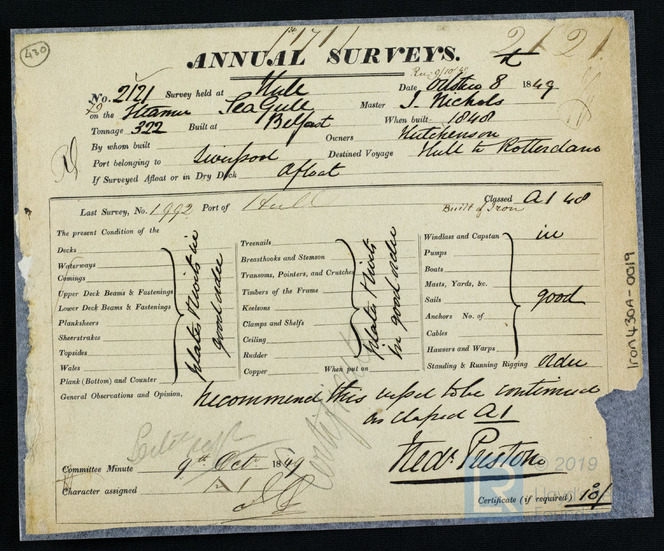 430
1171
2121
ANNUAL SURVEYS.
Rec 9/10/49
No. 2121 Survey held at Hull Date October 8 1849
on the Steamer Sea Gull Master J. Nichols
Tonnage 322 Built at Belfast When built 1848
By whom built Owners Hutchenson
Port belonging to Liverpool Destined Voyage Hull to Rotterdam
If Surveyed Afloat or in Dry Dock Afloat
Last Survey, No. 1992 Port of Hull Classed A1 48
Built of Iron
The present Condition of the
Decks
Waterways
Comings
Upper Deck Beams & Fastenings
Lower Deck Beams & Fastenings
Planksheers
Sheerstrakes
Topsides
Wales
Plank (Bottom) and Counter
Plates & Rivets in
good order
Treenails
Breasthooks and Stemson
Transoms, Pointers, and Crutches
Timbers of the Frame
Keelsons
Clamps and Shelfs
Ceiling
Rudder
Copper When put on
Plates & Rivets
in good order
Windlass and Capstan in
Pumps
Boats
Masts, Yards, &c.
Sails good
Anchors No. of
Cables
Hawsers and Warps
Standing & Running Rigging order
General Observations and Opinion, recommend this vessel to be continued
as classed A1
Certificate
Fredk Preston
Committee Minute 9th Octr 1849
Character assigned A1
Certificate (if required) 10/
© 2019
LR
Iron430A-0019